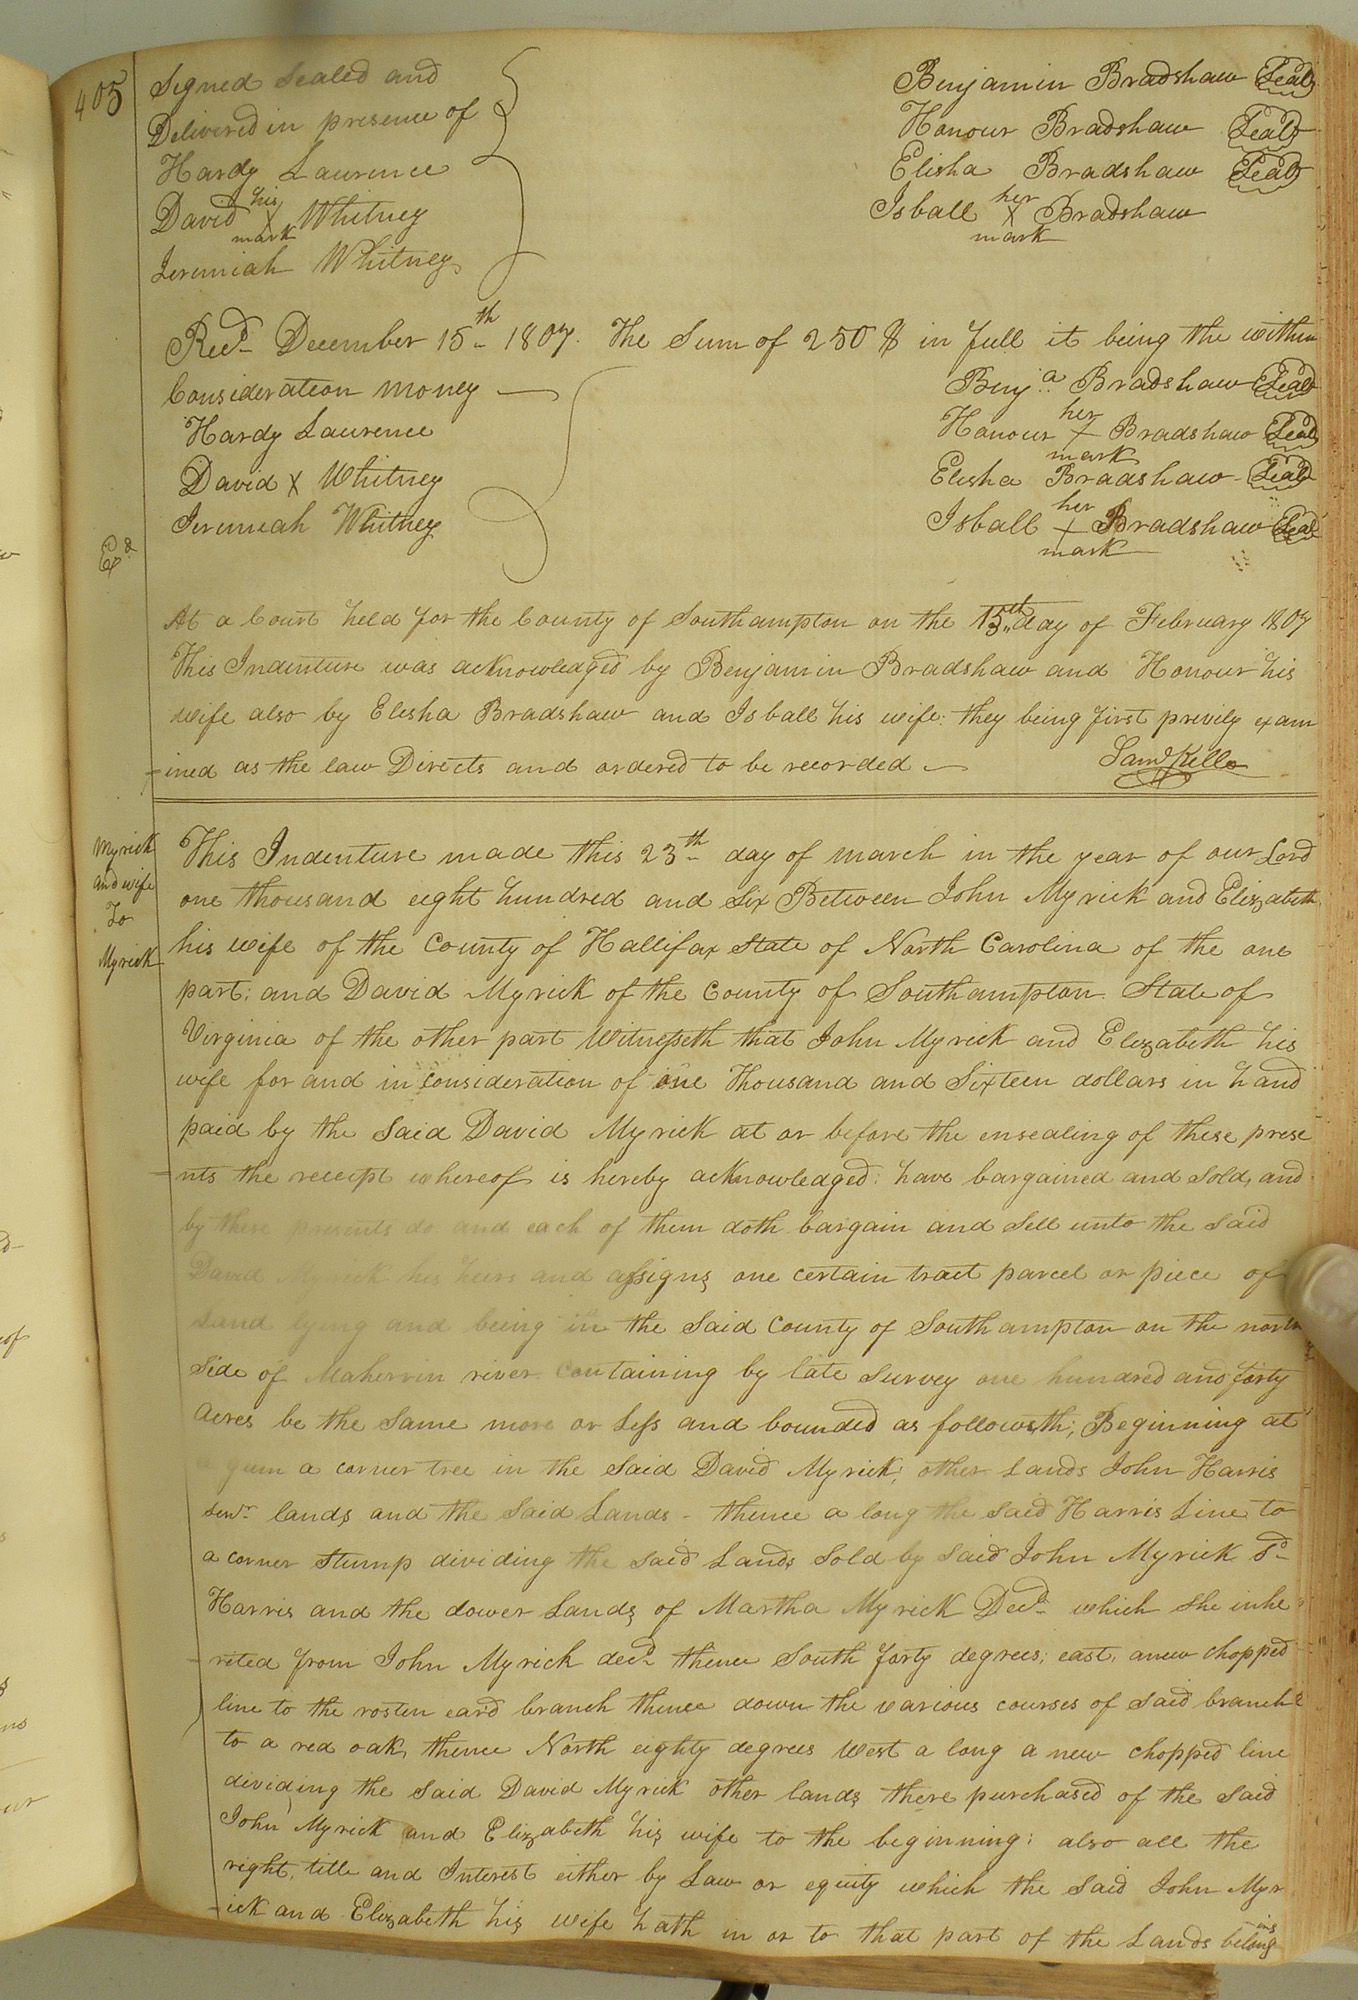 405
Signed Sealed and
Delivered in presence of
Hardy Laurence
David his X mark Whitney
Jeremiah Whitney
Benjamin Bradshaw Seal
Honour Bradshaw Seal
Elisha Bradshaw Seal
Isball her X mark Bradshaw
Recd. December 15th 1807. The Sum of 250 $ in full it being the within
Consideration money
Hardy Laurence
David X Whitney
Jeremiah Whitney
Benja Bradshaw Seal
Honour her X mark Bradshaw Seal
Elisha Bradshaw Seal
Isball her X mark Bradshaw Seal
Exd
At a Court held for the County of Southampton on the 15th day of February 1807
This Indenture was acknowledged by Benjamin Bradshaw and Honour his
wife also by Elisha Bradshaw and Isball his wife: they being first privily exam
-ined as the law Directs and ordered to be recorded
Saml Kello
Myrick
and wife
To
Myrick
This Indenture made this 23th day of march in the year of our Lord
one thousand eight hundred and Six Between John Myrick and Elizabeth
his wife of the County of Hallifax State of North Carolina of the one
part: and David Myrick of the County of Southampton State of
Virginia of the other part Witnesseth that John Myrick and Elizabeth his
wife for and in consideration of one Thousand and Sixteen dollars in hand
paid by the Said David Myrick at or before the ensealing of these prese
-nts the receipt whereof is hereby acknowledged: have bargained and Sold, and
by these presents do and each of them doth bargain and Sell unto the said
David Myrick his heirs and assigns one certain tract parcel or piece of
Land lying and being in the Said County of Southampton on the north
Side of Maherrin river containing by late Survey one hundred and forty
acres be the Same more or Less and bounded as followeth; Beginning at
a gum a corner tree in the Said David Myrick, other Lands John Harris
Senr lands and the Said Lands - thence a long the said Harris Line to
a corner Stump dividing the said Lands Sold by said John Myrick Sd
Harris and the dower Lands of Martha Myrick Decd which She inhe
-rited from John Myrick decd thence South forty degrees; east, a new chopped
line to the rosten eard branch thence down the various courses of said branch
to a red oak, thence North eighty degrees West a long a new chopped line
dividing the said David Myrick other lands there purchased of the said
John Myrick and Elizabeth his wife to the beginning: also all the
right, title and Interest either by Law or equity which the Said John Myr
-ick and Elizabeth his wife hath in or to that part of the Lands belong
ing